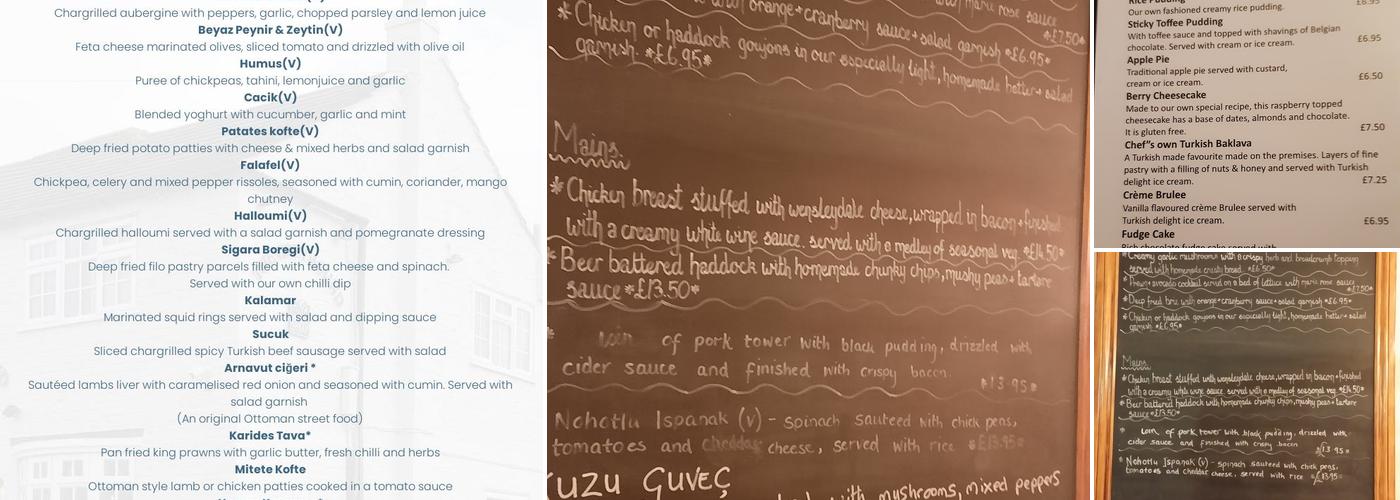 Chargrilled aubergine with peppers, garlic, chopped parsley and lemon juice
Beyaz Peynir & Zeytin(V)
Feta cheese marinated olives, sliced tomato and drizzled with olive oil
Humus(V)
Puree of chickpeas, tahini, lemonjuice and garlic
Cacik(V)
Blended yoghurt with cucumber, garlic and mint
Patates kofte(V)
Deep fried potato patties with cheese & mixed herbs and salad garnish
Falafel(V)
Chickpea, celery and mixed pepper rissoles, seasoned with cumin, coriander, mango
chutney
Halloumi(V)
Chargrilled halloumi served with a salad garnish and pomegranate dressing
Sigara Boregi(V)
Deep fried filo pastry parcels filled with feta cheese and spinach.
Served with our own chilli dip
Kalamar
Marinated squid rings served with salad and dipping sauce
Sucuk
Sliced chargrilled spicy Turkish beef sausage served with salad
Arnavut ciğeri *
Sautéed lambs liver with caramelised red onion and seasoned with cumin. Served with
salad garnish
(An original Ottoman street food)
Karides Tava*
Pan fried king prawns with garlic butter, fresh chilli and herbs
Mitete Kofte
Ottoman style lamb or chicken patties cooked in a tomato sauce
with orange+cranberry sauce+salad garnish *£6.95*
marie rose sauce
*£7.50*
*Chicken or haddock goujons in our especially light, homemade batter+salad
garnish. *£6.95*
Mains.
*Chicken breast stuffed with wensleydale cheese, wrapped in bacon+finished
with a creamy white wine sauce. served with a medley of seasonal veg. *£14.50*
*Beer battered haddock with homemade chunky chips, mushy peas+tartare
sauce *£13.50*
* Loin of pork tower with black pudding, drizzled with
cider sauce and finished with crispy bacon.
*13.95*
Nohotlu Ispanak (v) - spinach sauteed with chick peas,
tomatoes and cheddar cheese, served with rice *£13.95*
UZU GUVEÇ
with mushrooms, mixed peppers
Rice Pudding
Our own fashioned creamy rice pudding.
£6.95
Sticky Toffee Pudding
With toffee sauce and topped with shavings of Belgian
chocolate. Served with cream or ice cream.
£6.95
Apple Pie
Traditional apple pie served with custard,
cream or ice cream.
£6.50
Berry Cheesecake
Made to our own special recipe, this raspberry topped
cheesecake has a base of dates, almonds and chocolate.
It is gluten free.
£7.50
Chef"s own Turkish Baklava
A Turkish made favourite made on the premises. Layers of fine
pastry with a filling of nuts & honey and served with Turkish
delight ice cream.
£7.25
Crème Brulee
Vanilla flavoured crème Brulee served with
Turkish delight ice cream.
£6.95
Fudge Cake
Rich chocolate fudge cake served with
*Creamy garlic mushrooms with a crispy herb and breadcrumb topping
served with homemade crusty bread. *£6.50*
*Prawn+avocado cocktail served on a bed of lettuce with marie rose sauce
*£7.50*
*Deep fried brie with orange+cranberry sauce+salad garnish *£6.95*
*Chicken or haddock goujons in our especially light, homemade batter+salad
garnish *£6.95*
Mains.
*Chicken breast stuffed with wensleydale cheese, wrapped in bacon+finished
with a creamy white wine sauce. served with a medley of seasonal veg. *£14.50*
*Beer battered haddock with homemade chunky chips, mushy peas+tartare
sauce *£13.50*
* Loin of pork tower with black pudding, drizzled with
cider sauce and finished with crispy bacon
*£13.95*
*Nohotlu Ispanak (v) - spinach sauteed with chick peas,
tomatoes and cheddar cheese, served with rice *£13.95*